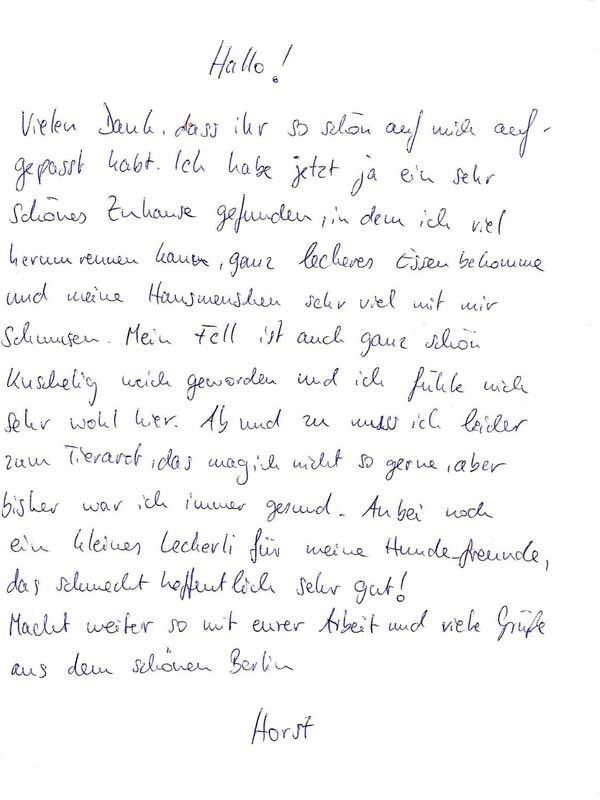 Hallo!
Vielen Dank, dass ihr so schön auf mich auf-
gepasst habt. Ich habe jetzt ja ein sehr
schönes Zuhause gefunden, in dem ich viel
herumrennen kann, ganz leckeres Essen bekomme
und meine Hausmenschen sehr viel mit mir
schmusen. Mein Fell ist auch ganz schön
kuschelig weich geworden und ich fühle mich
sehr wohl hier. Ab und zu muss ich leider
zum Tierarzt, das mag ich nicht so gerne, aber
bisher war ich immer gesund. Anbei noch
ein kleines Leckerli für meine Hundefreunde,
das schmeckt hoffentlich sehr gut!
Macht weiter so mit eurer Arbeit und viele Grüße
aus dem schönen Berlin
Horst